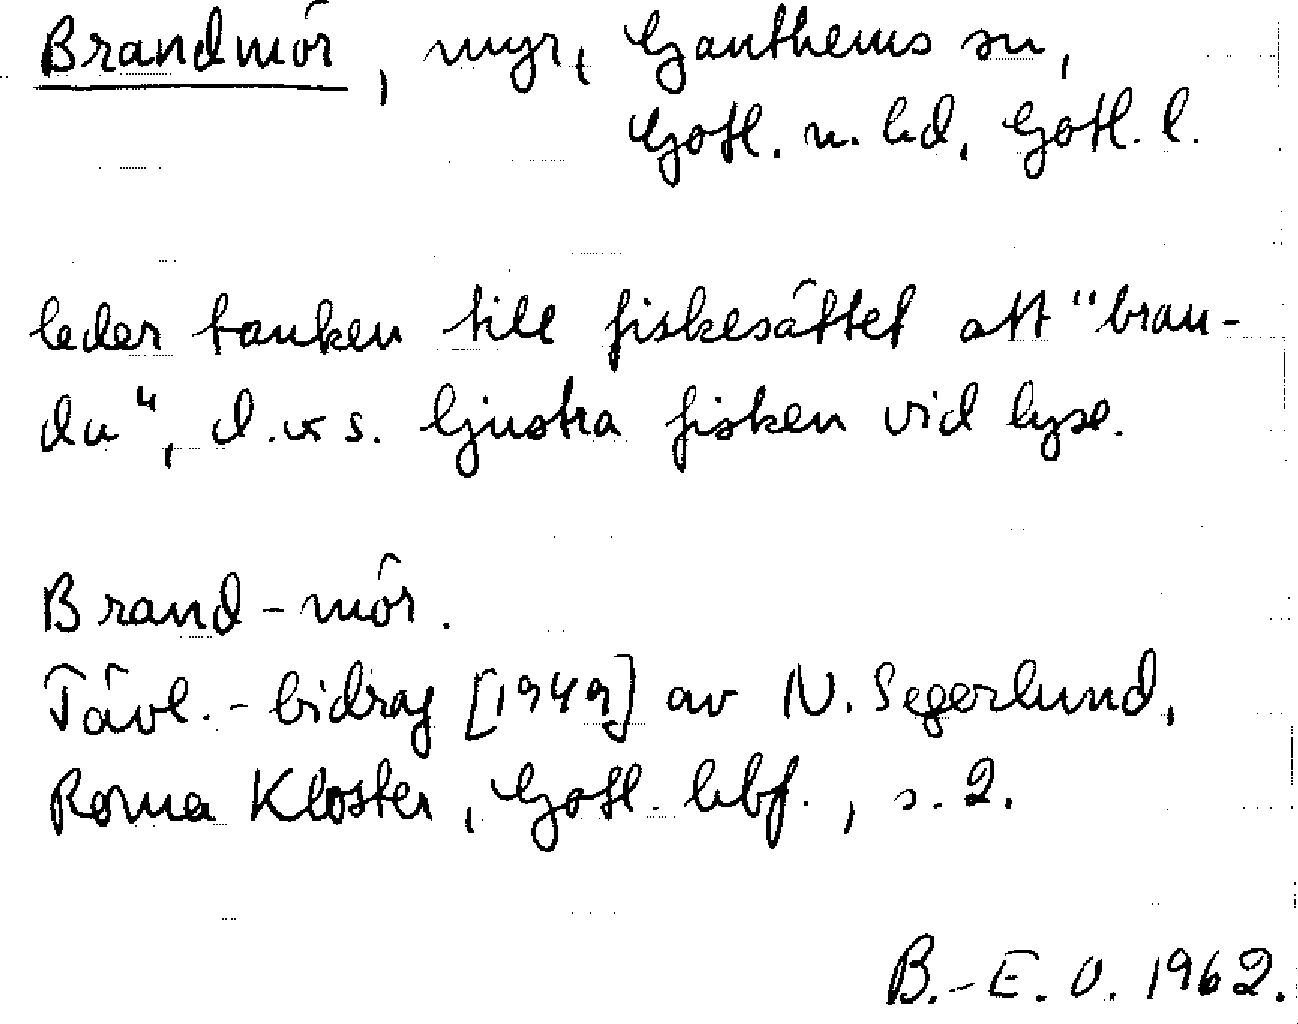 Brandmör, myr, Ganthems sn,
Gotl. n. hd, Gotl. l.
leder tanken till fiskesättet att "bran-
da", d.v.s. ljustra fisken vid lyse.
Brand-mör.
Tävl.-bidrag [1949] av N. Segerlund,
Roma Kloster, Gotl. hbf., s. 2.
B.-E. O. 1962.